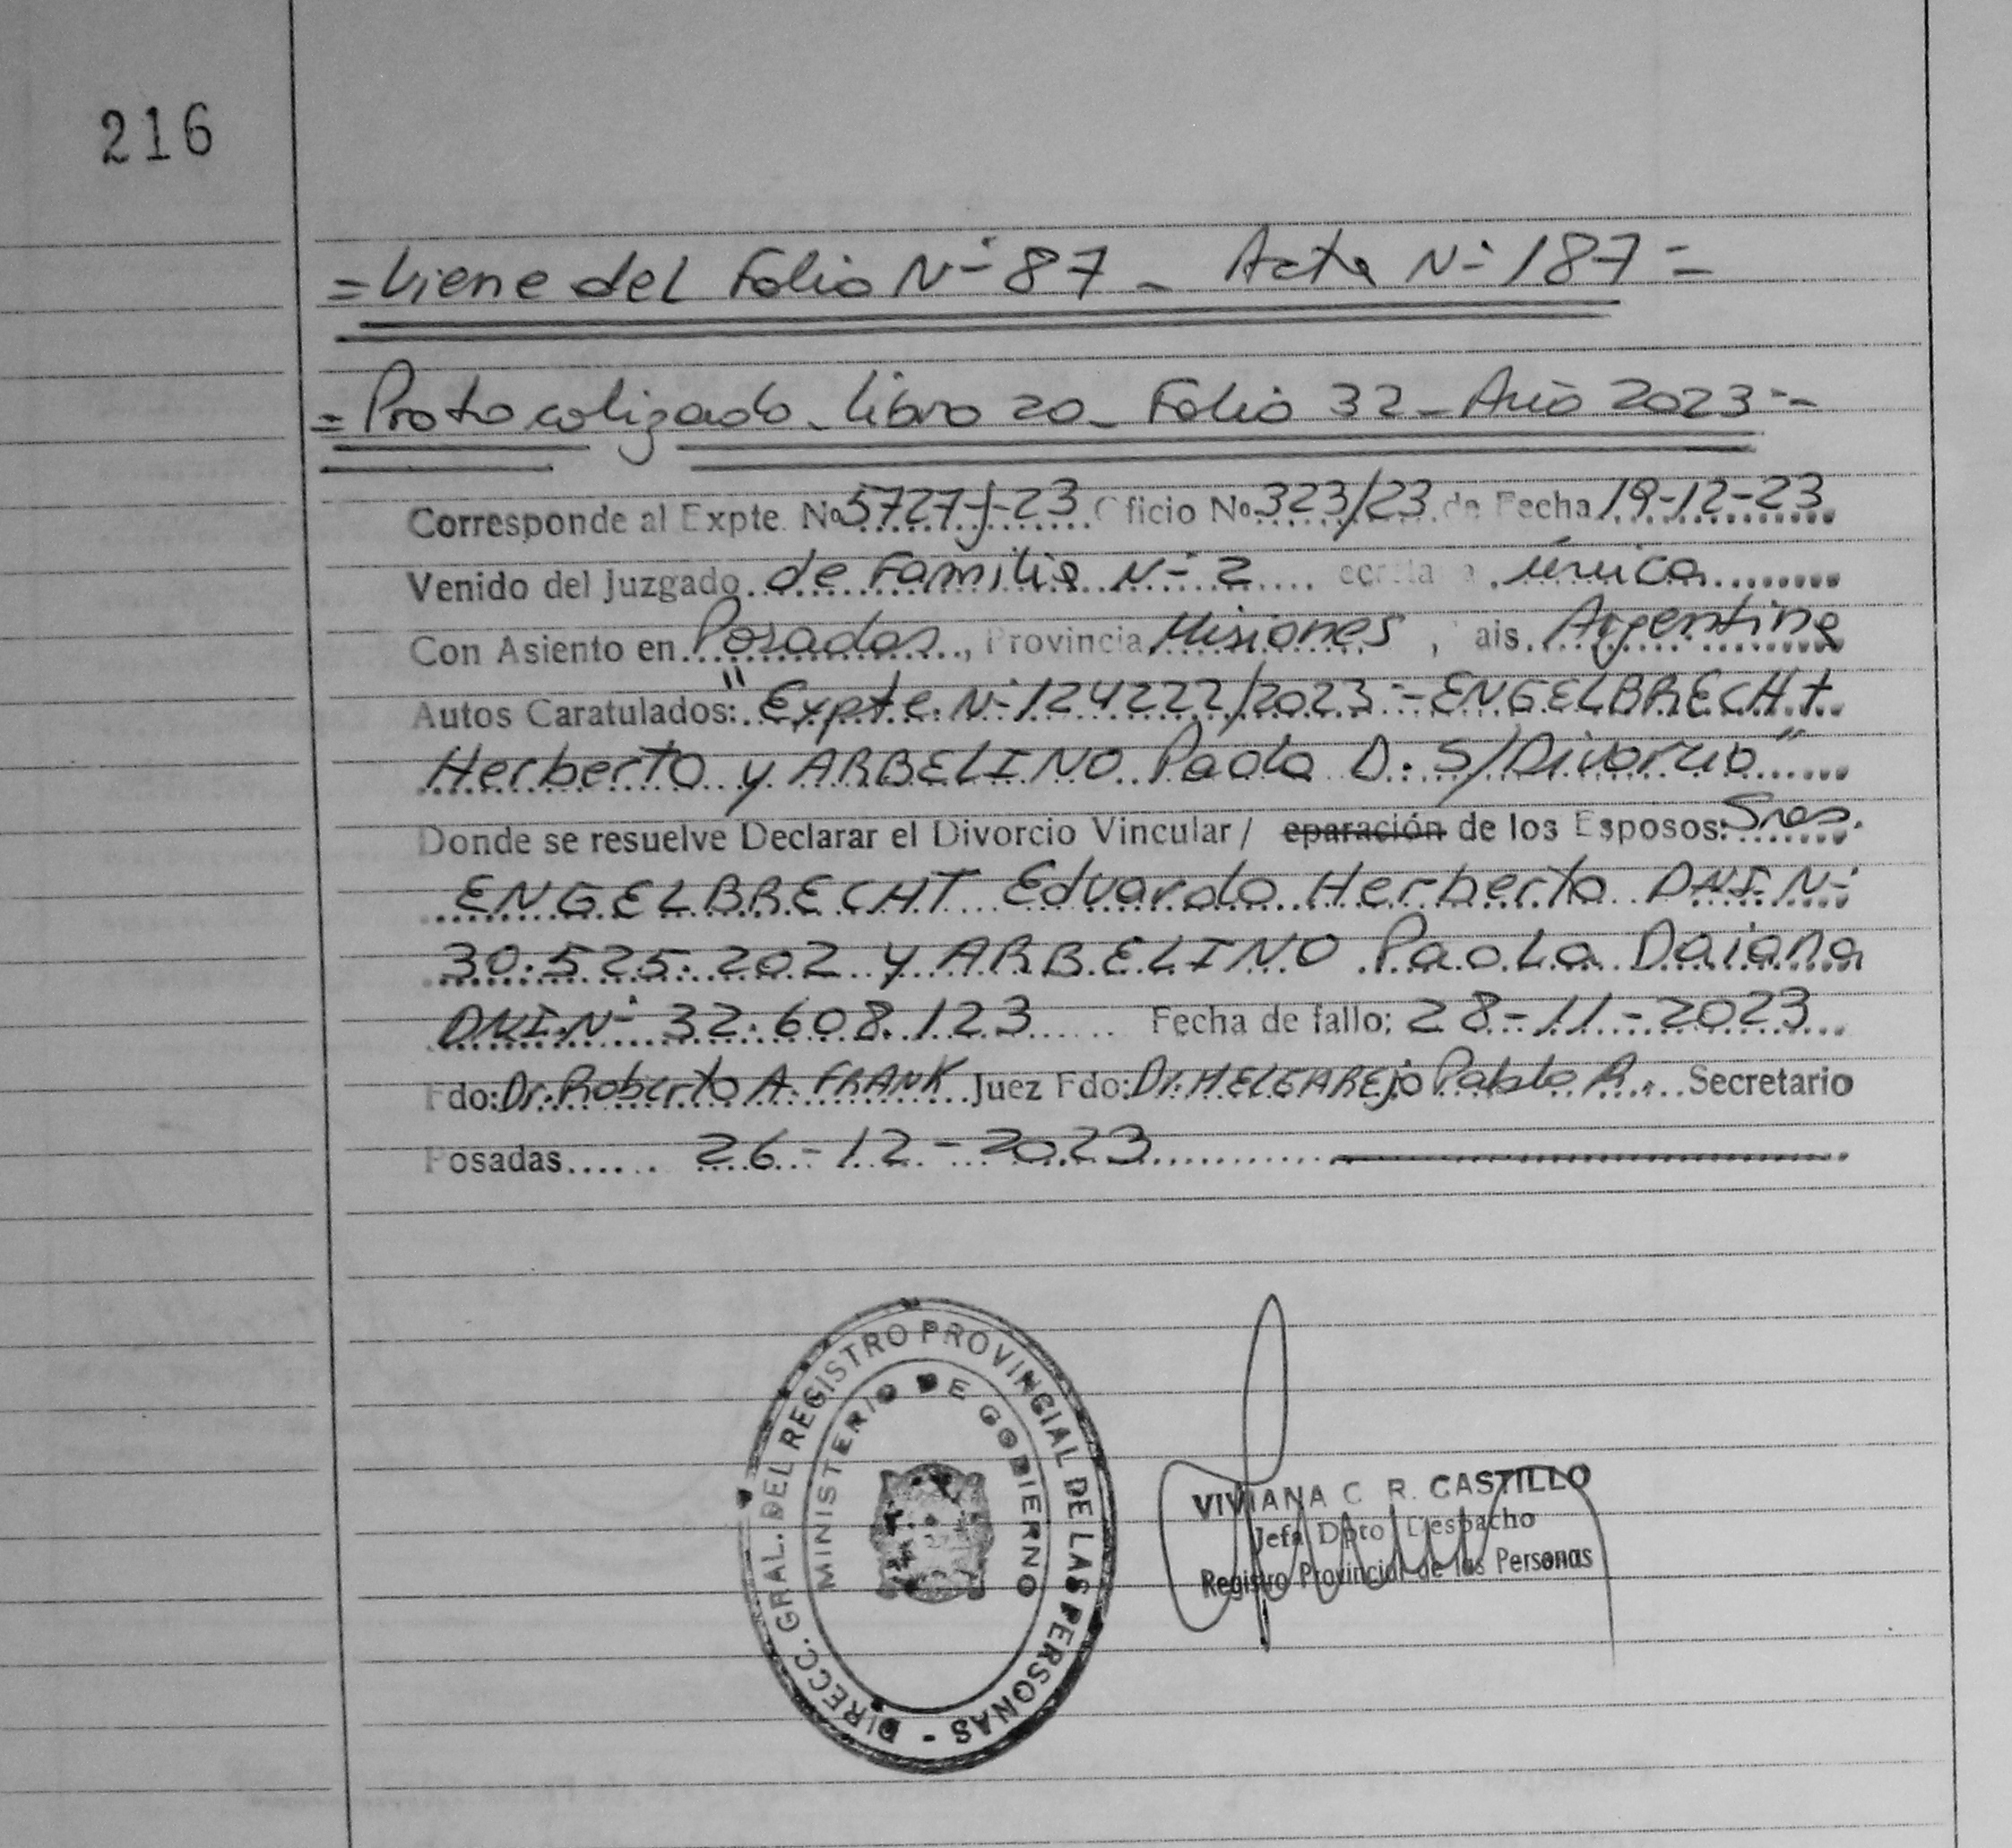 216
=Viene del Folio N° 87 - Acta N° 187=
=Protocolizado - Libro 20 - Folio 32 - Año 2023=-
Corresponde al Expte. No 5727-J-23 Oficio No 323/23 de Fecha 19-12-23
Venido del Juzgado de Familia N° 2 única
Con Asiento en Posadas, Provincia Misiones, ais. Argentina
Autos Caratulados: "Expte. N° 124222/2023 - ENGELBRECHt
Herberto y ARBELINO Paola D. S/Divorcio"
Donde se resuelve Declarar el Divorcio Vincular / eparación de los Esposos: Sres.
ENGELBRECHT Eduardo Herberto DNI. N°
30.525.202 y ARBELINO Paola Daiana
DNI. N° 32.608.123 Fecha de fallo: 28-11-2023
Fdo: Dr. Roberto A. FRANK Juez Fdo: Dr. MELGAREJO Pablo A. Secretario
Posadas 26-12-2023
DIRECC. GRAL. DEL REGISTRO PROVINCIAL DE LAS PERSONAS -
MINISTERIO DE GOBIERNO
VIVIANA C. R. CASTILLO
Jefa Dpto Despacho
Registro Provincial de las Personas